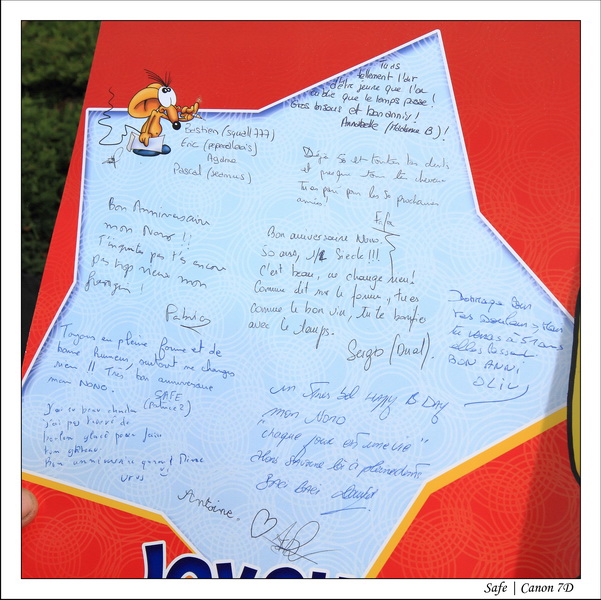 Tu as
tellement l'air
d'être jeune que l'on
oublie que le temps passe !
Gros bisous et bon anniv !
Annabelle (Madame B) !
Bastien (squall777)
Eric
Agdme
Pascal
Déjà 50 et toutes tes dents
et presque tous tes cheveux
Tu es paré pour les 50 prochaines
années !
Bon Anniversaire
mon Nono !!
T'inquiètes pas t'es encore
pas trop vieux mon
Patrice
Bon anniversaire Nono.
50 ans, 1/2 Siecle !!!
C'est beau, ne change rien !
Comme dit me le forme, tu es
comme le bon vin, tu te bonifie
avec le temps.
Sergio (Dual).
tes douleurs, Mon
tu verras à 51 ans
elles
BON ANNI
OLIV
Toujours en pleine forme et de
bonne humeur, surtout ne changes
rien !! Très bon anniversaire
mon NONO.
SAFE
(Patrice 2)
J'ai eu beau chercher
j'ai pas trouvé de
glacé pour faire
ton gâteau
Bon anniversaire quand même
un très bel Happy B Day
mon Nono
"chaque jour est une vie"
Alors savoure la à pleine dents
David
Antoine.
JOYEUX
Safe | Canon 7D